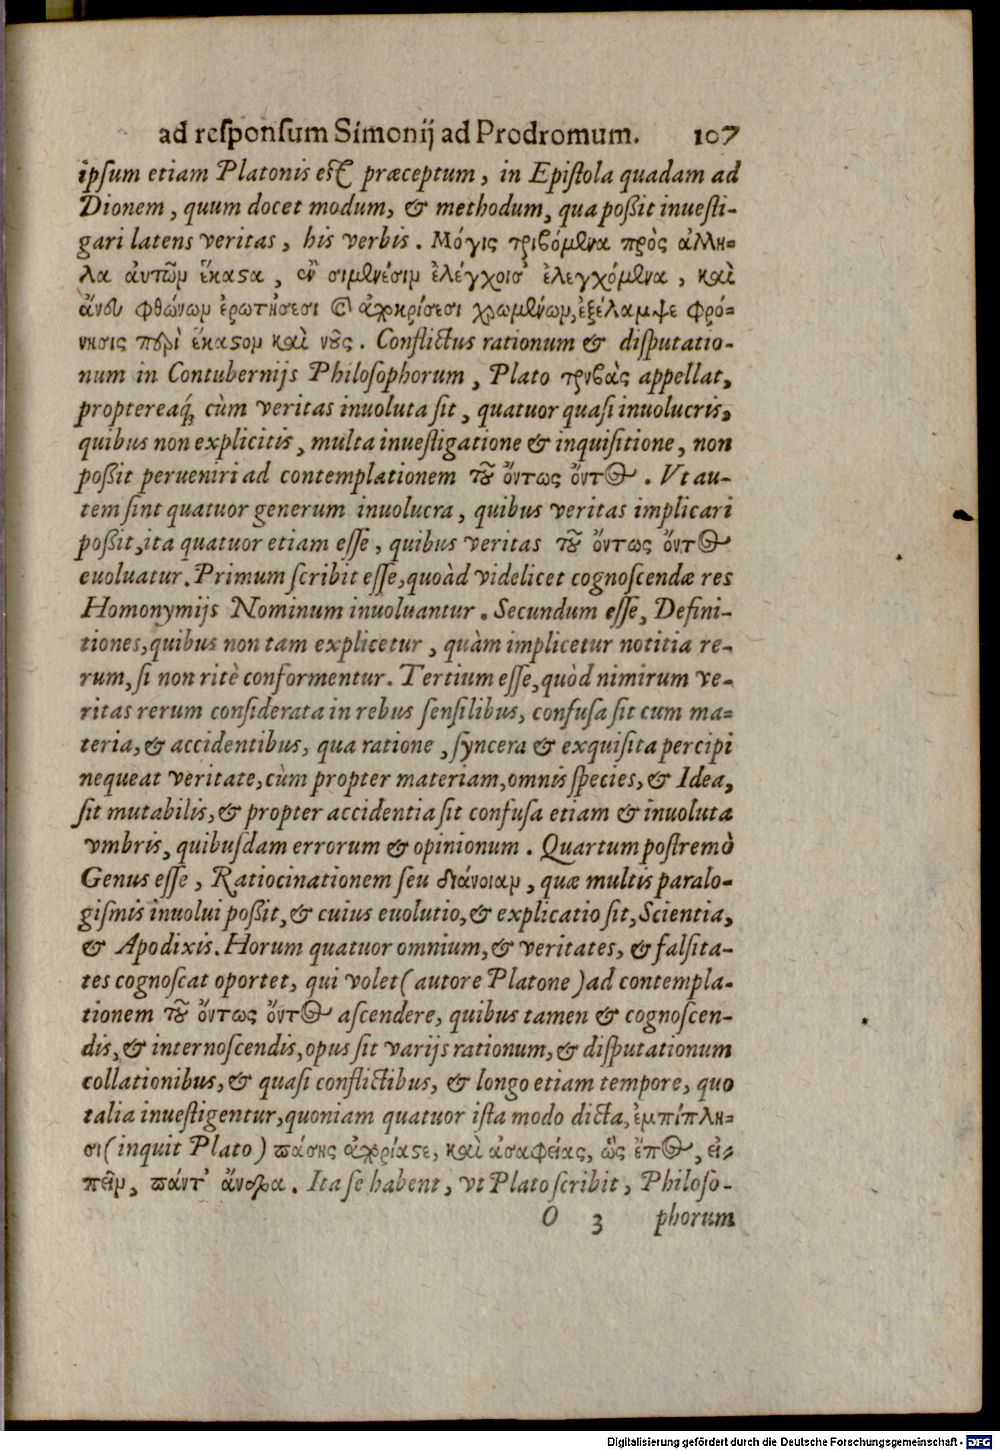 ad responsum Simonij ad Prodromum. 107
ipsum etiam Platonis est præceptum, in Epistola quadam ad
Dionem, quum docet modum, & methodum, qua poßit inuesti-
gari latens veritas, his verbis. Μόγις τριβόμενα πρὸς ἀλλη-
λα ἀυτῶν ἕκαστα, ἐν ἐυμενέσιν ἐλέγχοις ἐλεγχόμενα, καὶ
ἄνευ φθόνων ἐρωτήσεσι καὶ ἀποκρίσεσι χρωμένων, ἐξέλαμψε φρό-
νησις περὶ ἕκαστον καὶ νοῦς. Conflictus rationum & disputatio-
num in Contubernijs Philosophorum, Plato τριβὰς appellat,
proptereaq́; cùm veritas inuoluta sit, quatuor quasi inuolucris,
quibus non explicitis, multa inuestigatione & inquisitione, non
poßit perueniri ad contemplationem τοῦ ὄντως ὄντος. Vt au-
tem sint quatuor generum inuolucra, quibus veritas implicari
poßit, ita quatuor etiam esse, quibus veritas τοῦ ὄντως ὄντος
euoluatur. Primum scribit esse, quoàd videlicet cognoscendæ res
Homonymijs Nominum inuoluantur. Secundum esse, Defini-
tiones, quibus non tam explicetur, quàm implicetur notitia re-
rum, si non ritè conformentur. Tertium esse, quòd nimirum ve-
ritas rerum considerata in rebus sensilibus, confusa sit cum ma-
teria, & accidentibus, qua ratione, syncera & exquisita percipi
nequeat veritate, cùm propter materiam, omnis species, & Idea,
sit mutabilis, & propter accidentia sit confusa etiam & inuoluta
vmbris, quibusdam errorum & opinionum. Quartum postremò
Genus esse, Ratiocinationem seu διάνοιαν, quæ multis paralo-
gismis inuolui poßit, & cuius euolutio, & explicatio sit, Scientia,
& Apodixis. Horum quatuor omnium, & veritates, & falsita-
tes cognoscat oportet, qui volet (autore Platone) ad contempla-
tionem τοῦ ὄντως ὄντος ascendere, quibus tamen & cognoscen-
dis, & internoscendis, opus sit varijs rationum, & disputationum
collationibus, & quasi conflictibus, & longo etiam tempore, quo
talia inuestigentur, quoniam quatuor ista modo dicta, ἐμπίπλη-
σι (inquit Plato) πάσης ἀπορίας τε, καὶ ἀσαφείας, ὡς ἔπος, εἰ-
πεῖν, πάντ' ἄνδρα. Ita se habent, vt Plato scribit, Philoso-
O 3 phorum
Digitalisierung gefördert durch die Deutsche Forschungsgemeinschaft - DFG